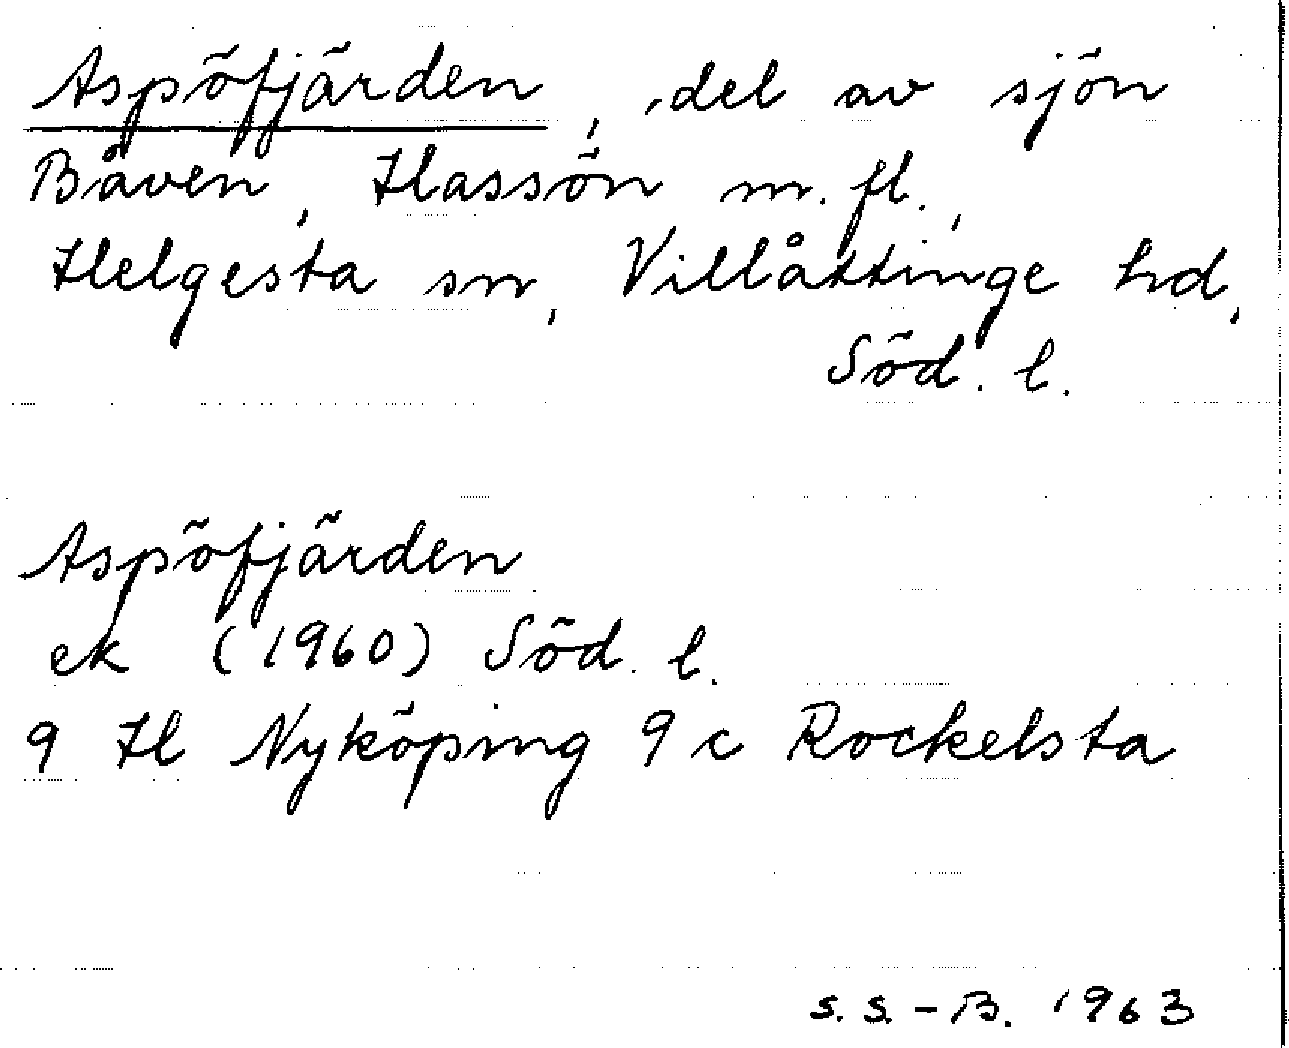 Aspöfjärden, del av sjön
Båven, Hassön m. fl.,
Helgesta sn, Villåttinge hd,
Söd. l.
Aspöfjärden
ek (1960) Söd. l.
9 H Nyköping 9 c Rockelsta
S. S. - B. 1963